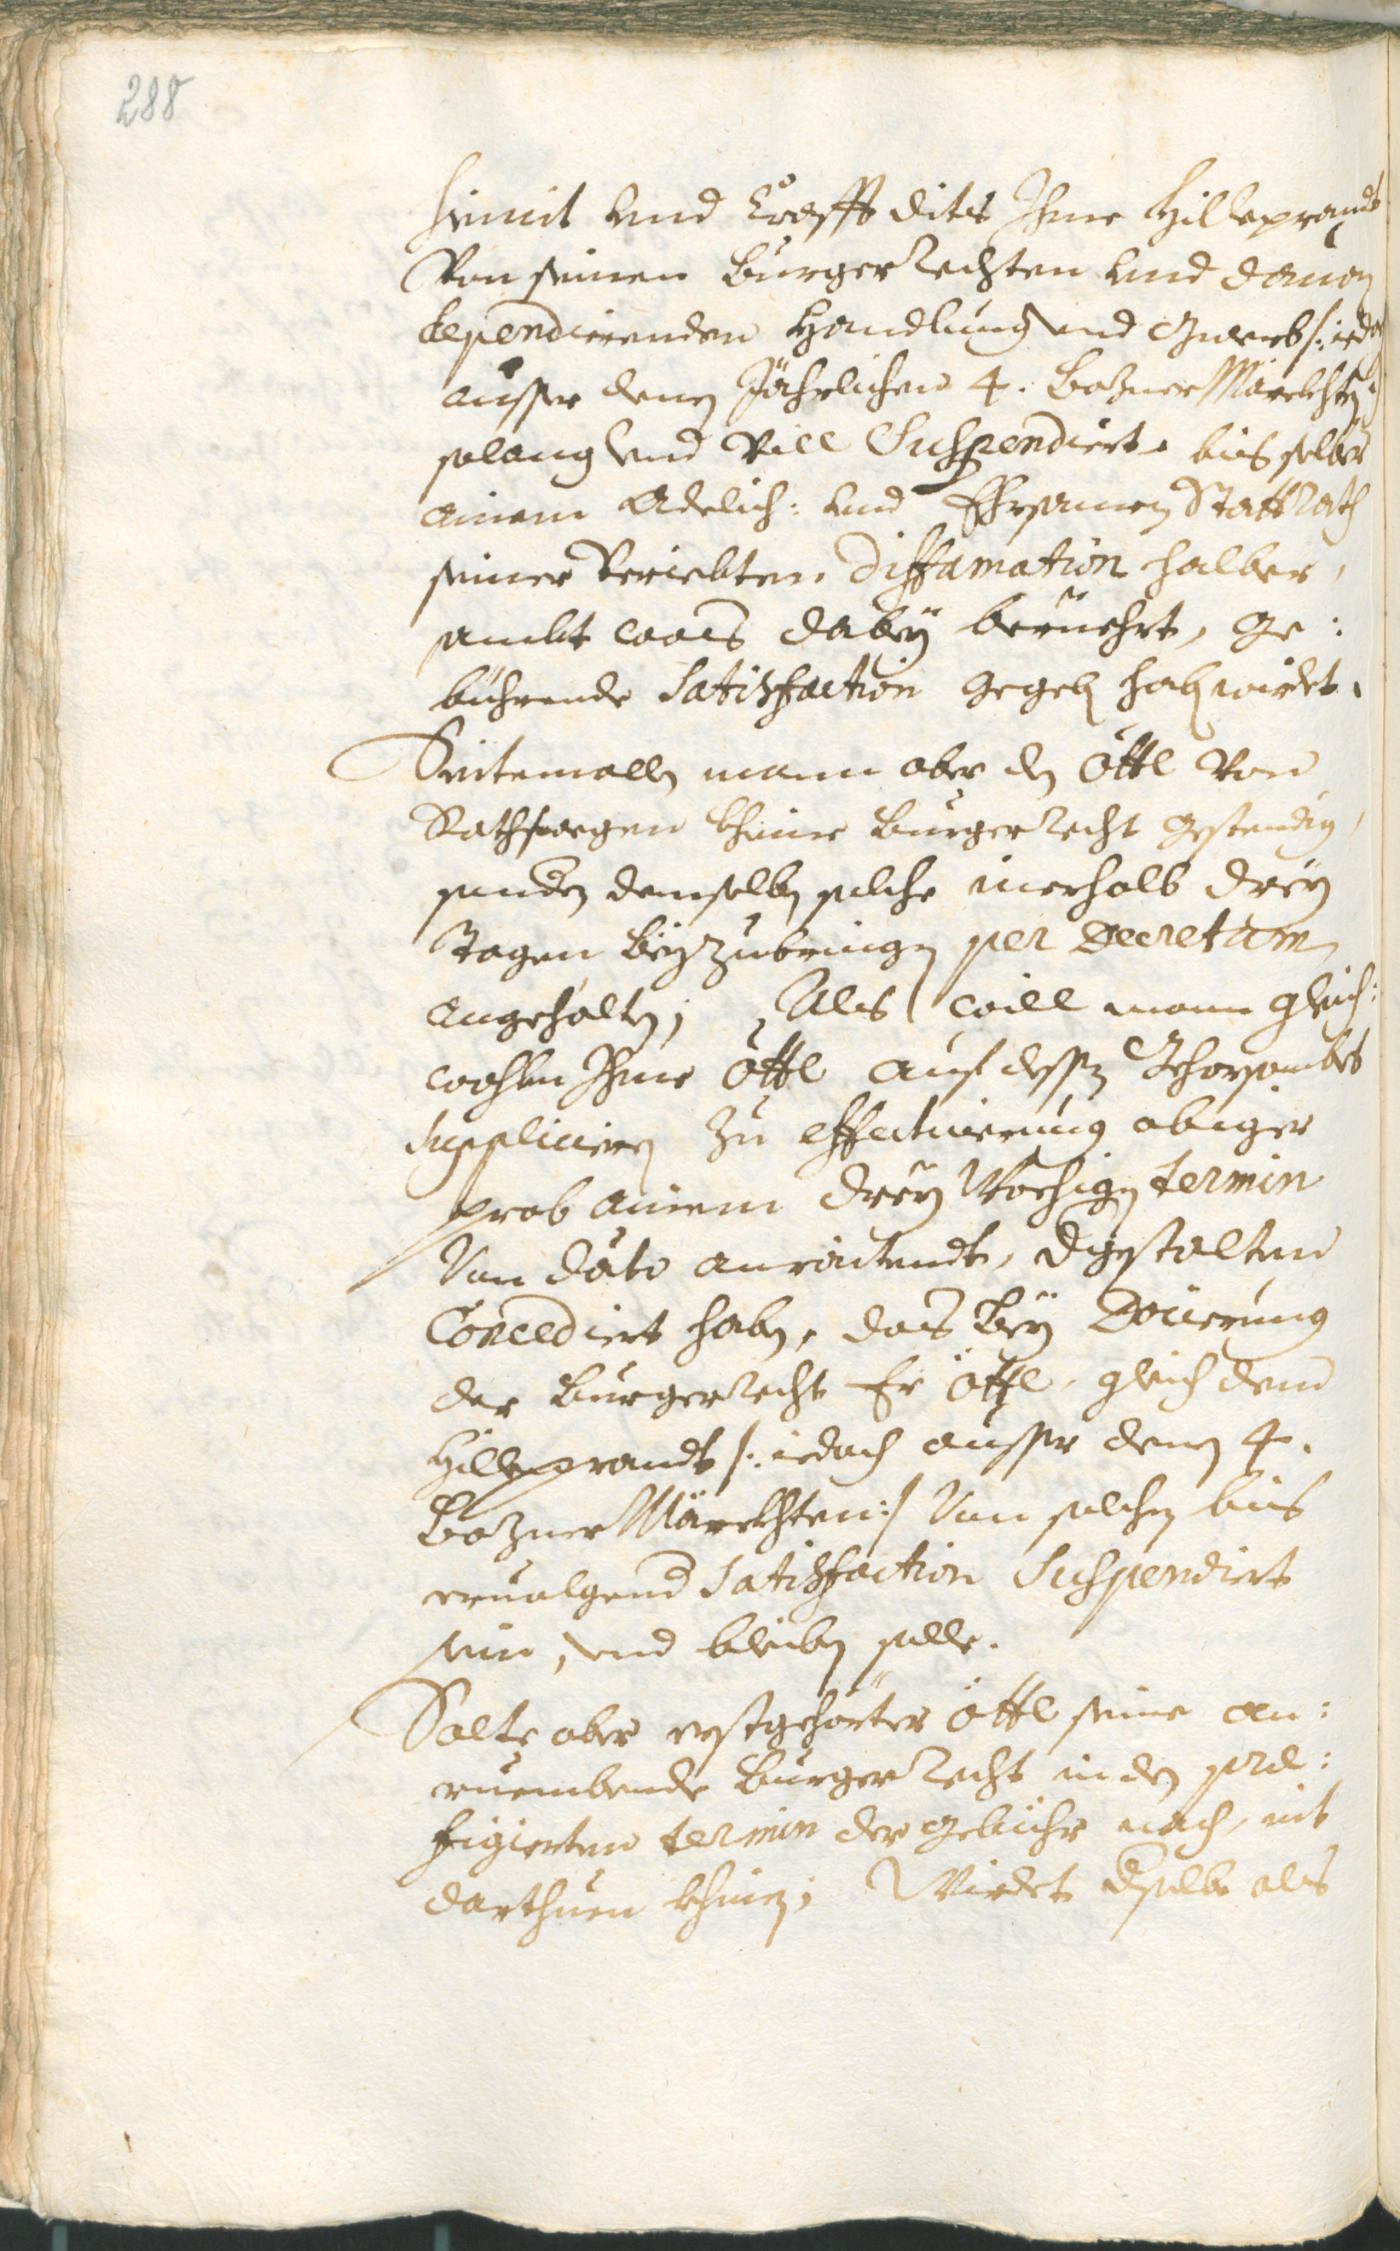 288
hiemit vnd Crafft dits Ihme Hilleprandt
Von seinen Burger Rechten vnd dauon
dependirenden Handlung vnd Gwerb /: iedoch
ausser denen Jährlichen 4. Bozner Märckhten :/
solang vnd Vill Suspendiert, bis selber
ainem Adelich: vnd Ehrsamen Statt Rath
seiner Veriebten Diffamation halber,
sambt waß dabey berüehrt, ge:
bührende Satisfaction gegeben haben wirdet.
Seitemallen mann aber den Öttl Von
Raths wegen kheine Burger Recht gestendig,
sonder demselben solche inerhalb dreÿ
Tagen beÿzubringen per Decretum
angehalten; Als will mann gleich:
wohlen Ihme Öttl auf dessen Gehorsambes
Supplicieren zu effectuierung obiger
prob ainem dreÿ Wochigen termin
Von dato anraitendt, dergestalten
Concediert haben, das beÿ Docierung
der Burger Recht Er Öttl, gleich dem
Hilleprandt /: iedoch ausser denen 4.
Bozner Märckhten :/ Von solchen bis
eruolgend Satisfaction Suspendiert
sein, vnd bleiben solle.
Solte aber erstgehörter Öttl seine an:
ruembende Burger Recht in den præ:
figierten termin der gebühr nach, nit
darthuen khinen; Wirdet derselbe als